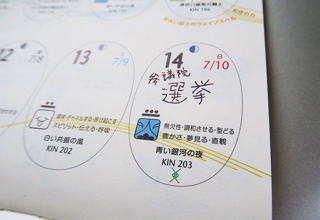 KIN 196
12
13
7/9
14 日
7/10
参議院
選挙
スピリット・伝える・呼吸
白い共振の風
KIN 202
無欠性・調和させる・型どる
豊かさ・夢見る・直観
青い銀河の夜
KIN 203